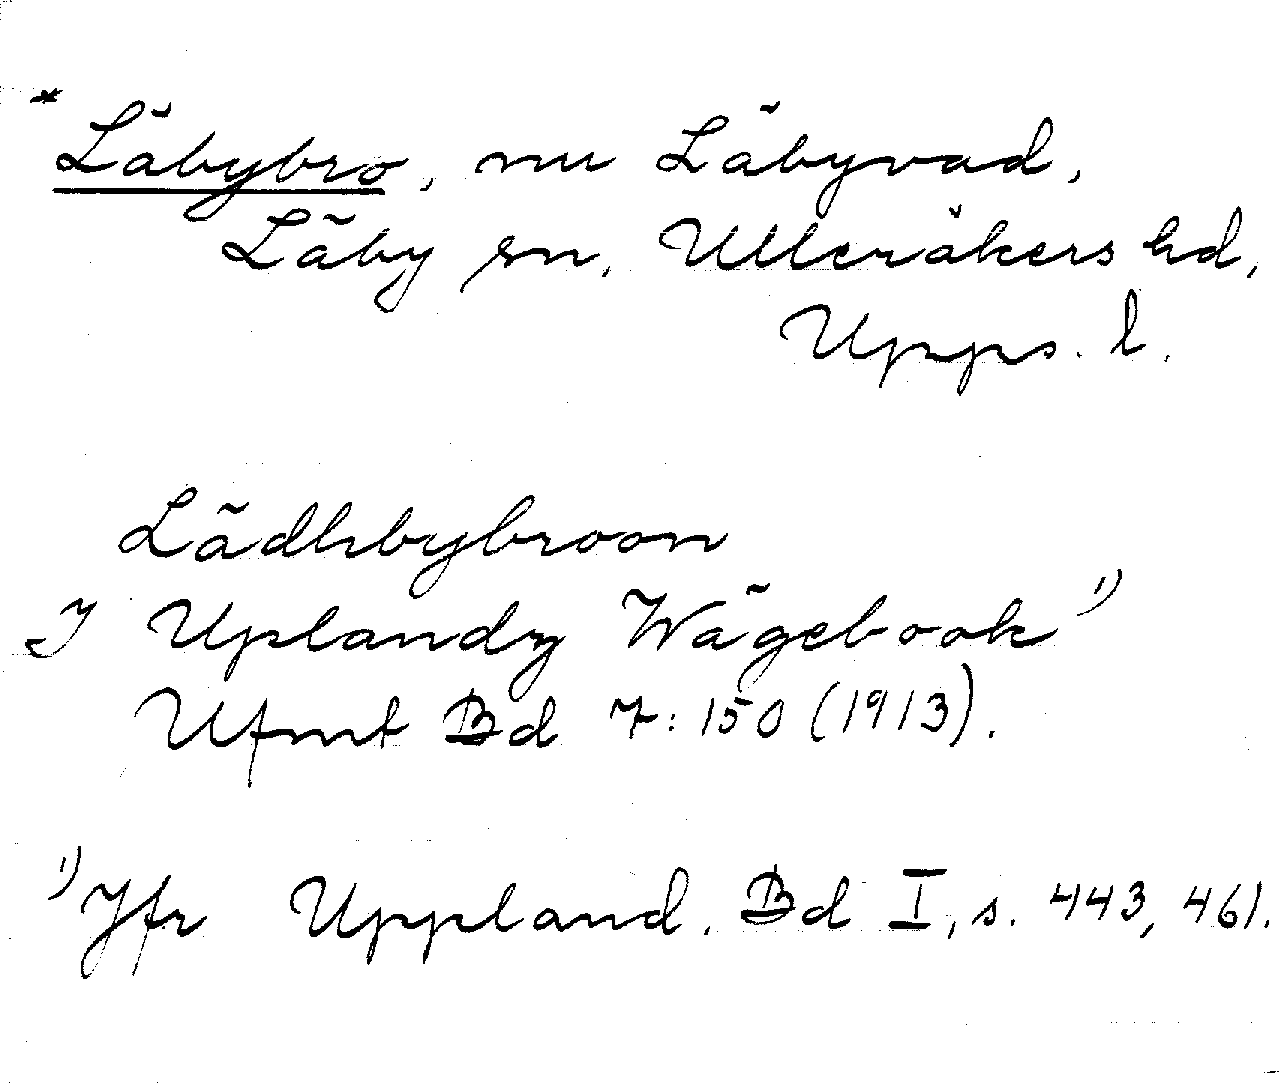 * Läbybro, nu Läbyvad,
Läby sn, Ulleråkers hd,
Upps. l.
Lädhbybroon
I Uplandz Wägebook 1)
Ufmt Bd 7:150 (1913).
1) Jfr Uppland. Bd I, s. 443, 461.